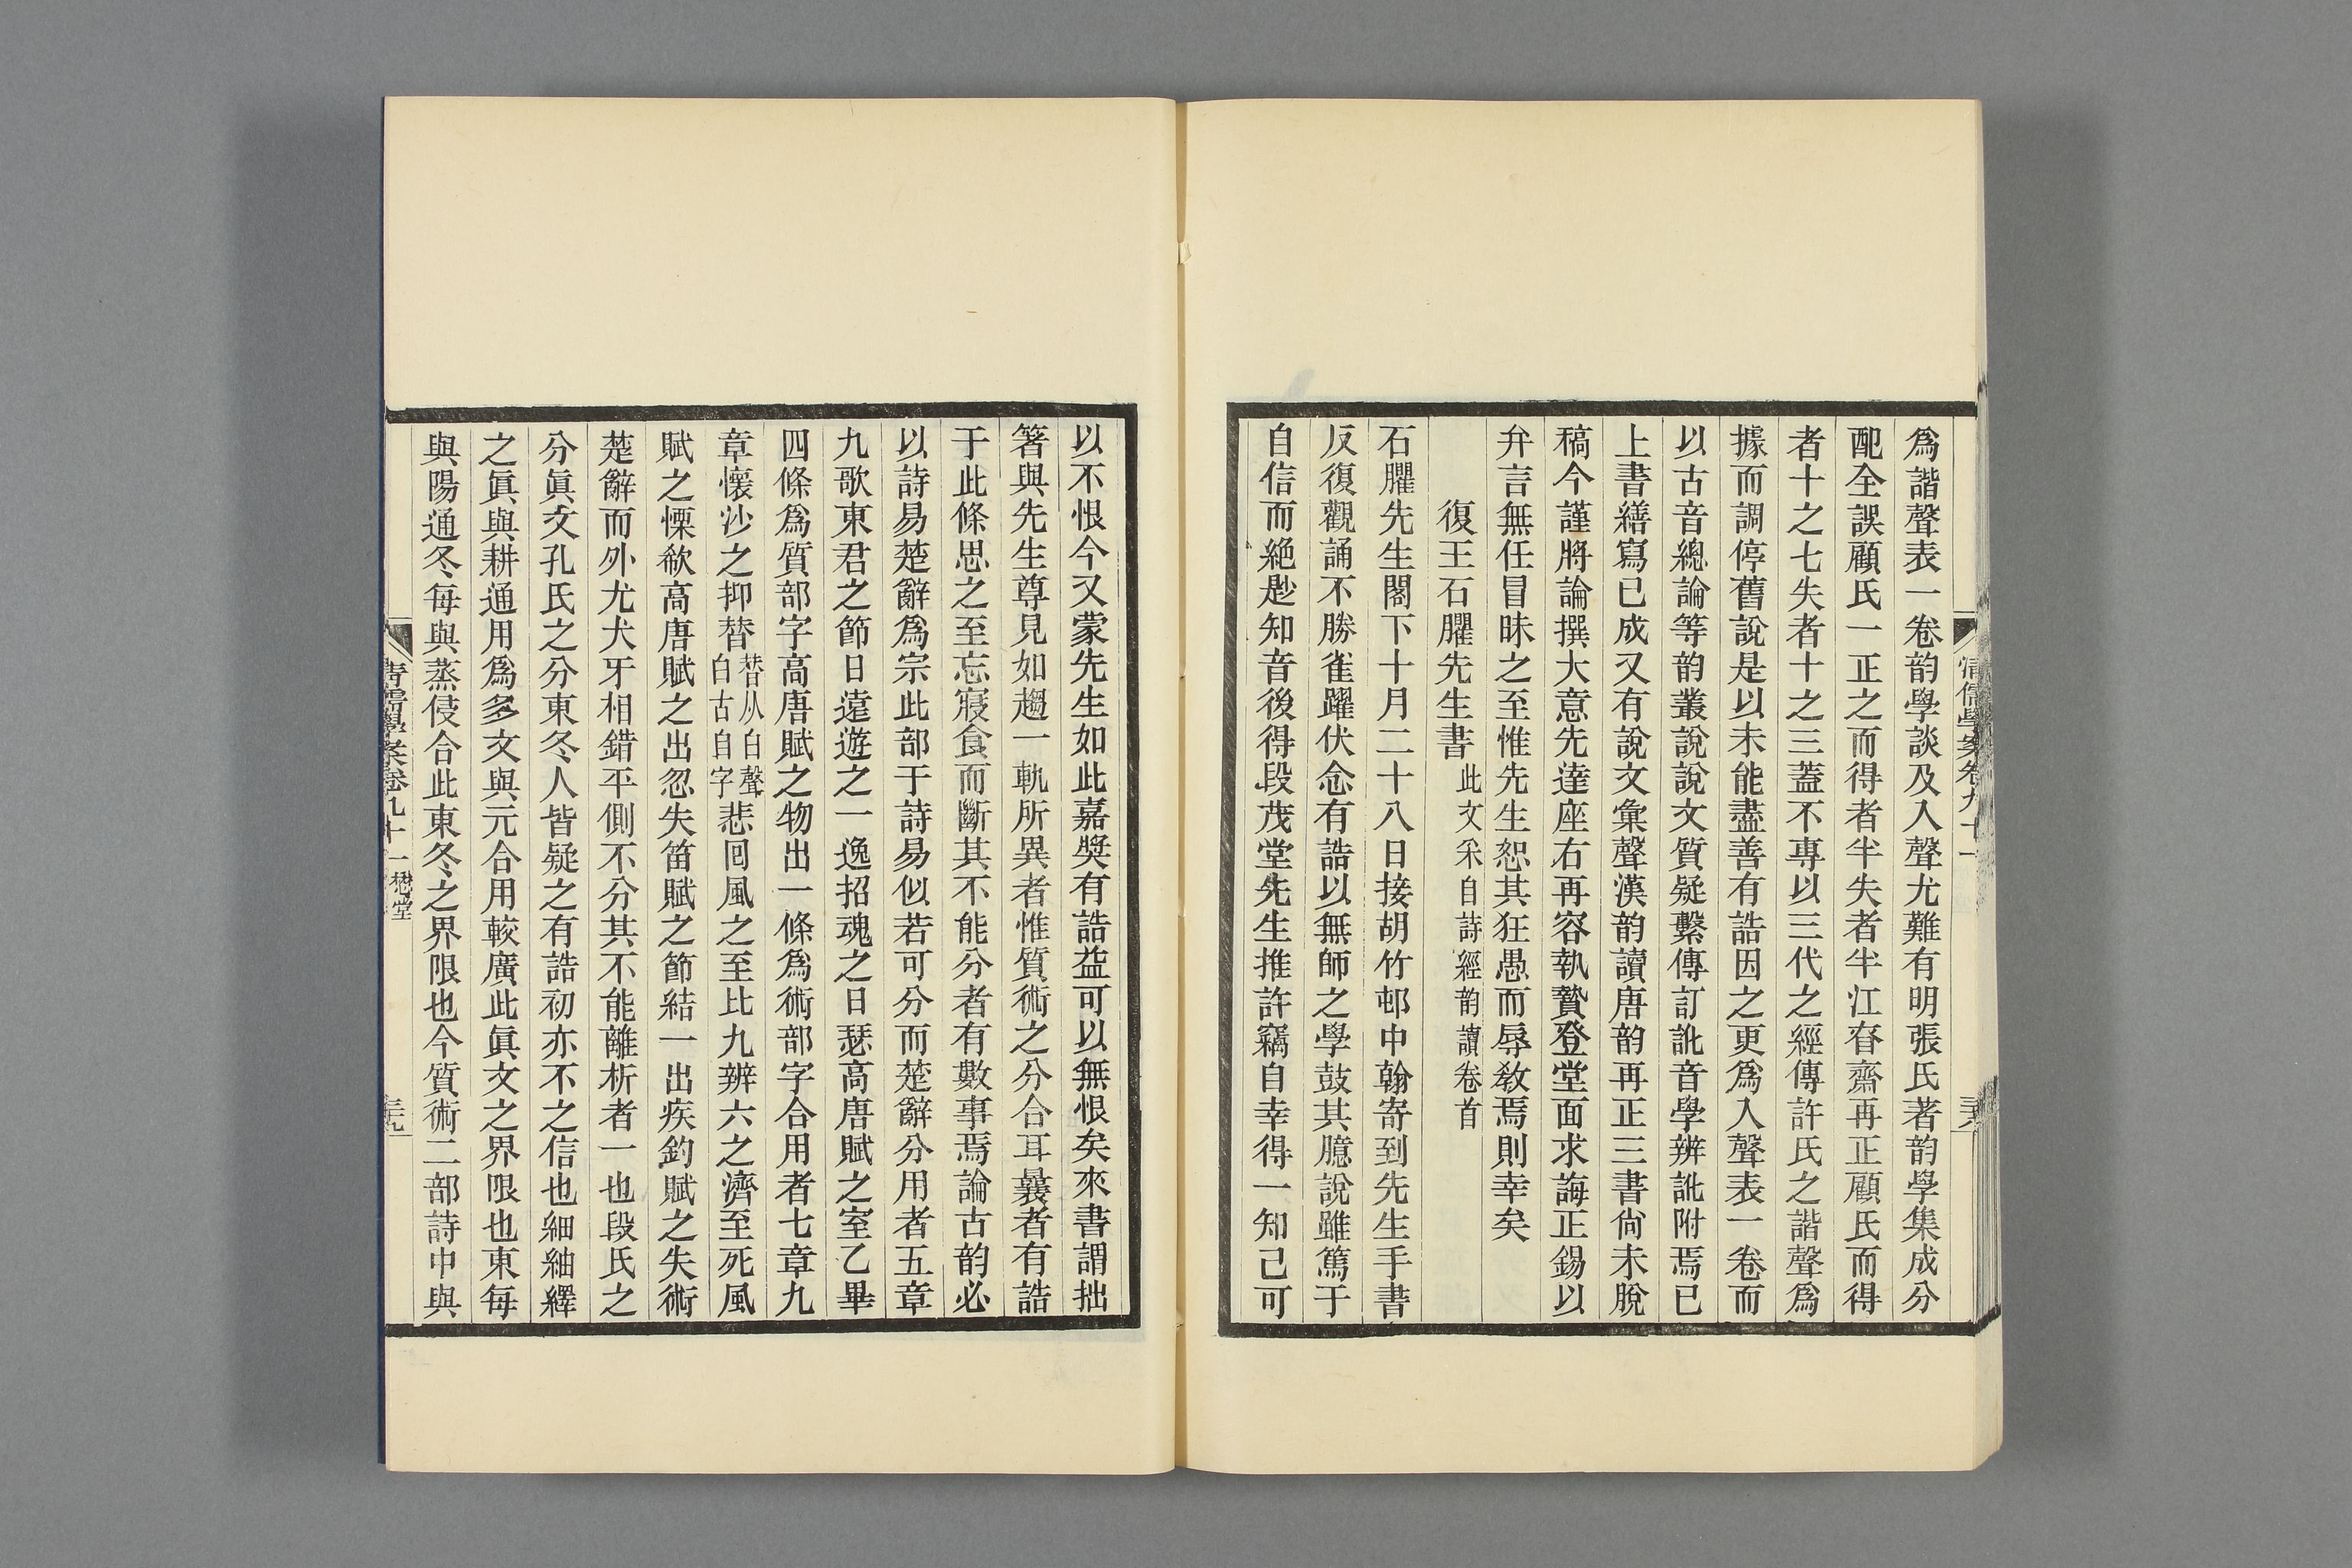 爲諧聲表一卷韵學談及入聲尤難有明張氏著韵學集成分
配全誤顧氏一正之而得者半失者半江昚齋再正顧氏而得
者十之七失者十之三蓋不專以三代之經傳許氏之諧聲爲
據而調停舊說是以未能盡善有誥因之更爲入聲表一卷而
以古音總論等韵叢說說文質疑繫傳訂訛音學辨訛附焉已
上書繕寫已成又有說文彙聲漢韵讀唐韵再正三書尙未脫
稿今謹將論撰大意先達座右再容執贄登堂面求誨正錫以
弁言無任冒昧之至惟先生恕其狂愚而辱敎焉則幸矣
復王石臞先生書此文采自詩經韵讀卷首
石臞先生閣下十月二十八日接胡竹邨中翰寄到先生手書
反復觀誦不勝雀躍伏念有誥以無師之學鼓其臆說雖篤于
自信而絶尟知音後得段茂堂先生推許竊自幸得一知己可
清儒學案卷九十一
三十八
以不恨今又蒙先生如此嘉奬有誥益可以無恨矣來書謂拙
箸與先生尊見如趨一軌所異者惟質術之分合耳曩者有誥
于此條思之至忘寢食而斷其不能分者有數事焉論古韵必
以詩易楚辭爲宗此部于詩易似若可分而楚辭分用者五章
九歌東君之節日遠遊之一逸招魂之日瑟高唐賦之室乙畢
四條爲質部字高唐賦之物出一條爲術部字合用者七章九
章懷沙之抑替替从白聲白古自字悲回風之至比九辨六之濟至死風
賦之慄欷高唐賦之出忽失笛賦之節結一出疾釣賦之失術
楚辭而外尤犬牙相錯平側不分其不能離析者一也段氏之
分眞文孔氏之分東冬人皆疑之有誥初亦不之信也細紬繹
之眞與耕通用爲多文與元合用較廣此眞文之界限也東每
與陽通冬每與蒸侵合此東冬之界限也今質術二部詩中與
清儒學案卷九十一懋堂
三十九